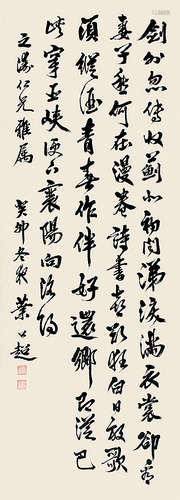 劍外忽傳收薊北初聞涕淚滿衣裳卻看
妻子愁何在漫卷詩書喜欲狂白日放歌
須縱酒青春作伴好還鄉即從巴
峽穿巫峽便下襄陽向洛陽
之仁兄雅屬
癸卯冬夜葉公超